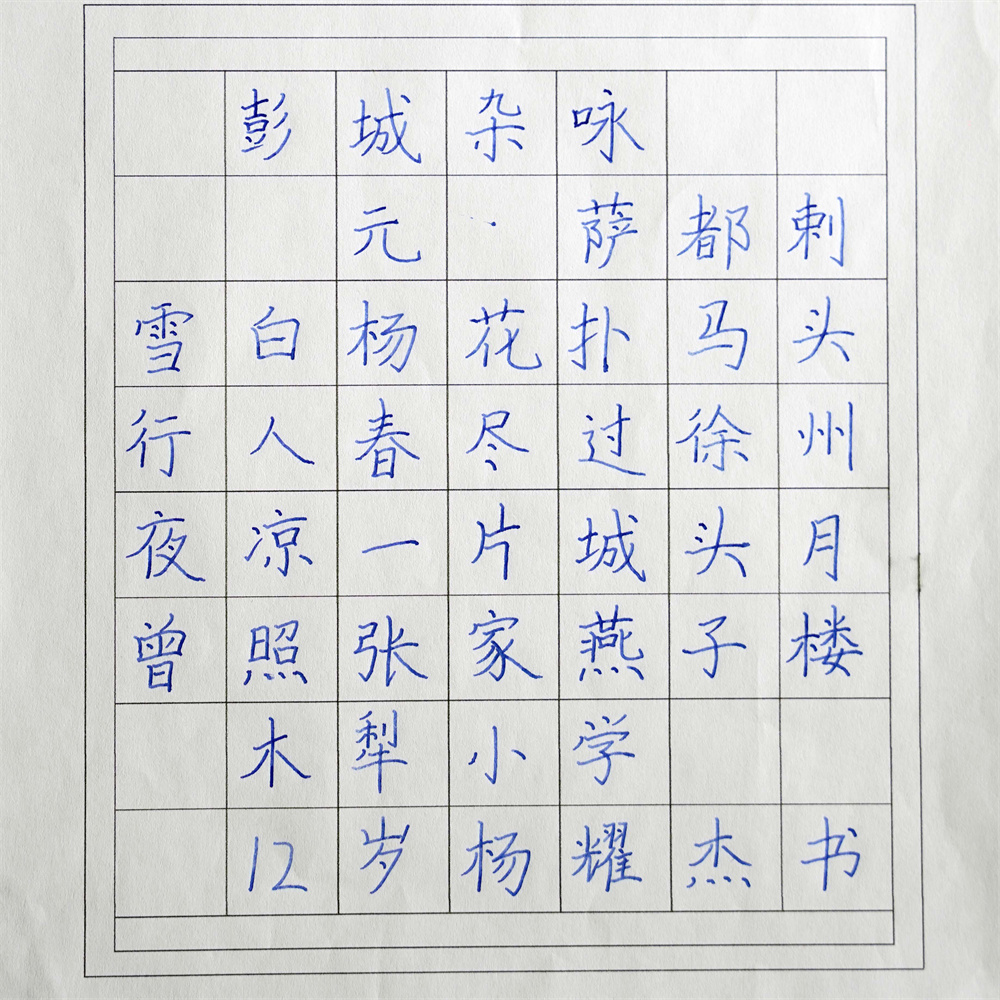 彭城杂咏
元·萨都剌
雪白杨花扑马头
行人春尽过徐州
夜凉一片城头月
曾照张家燕子楼
木犁小学
12岁杨耀杰书